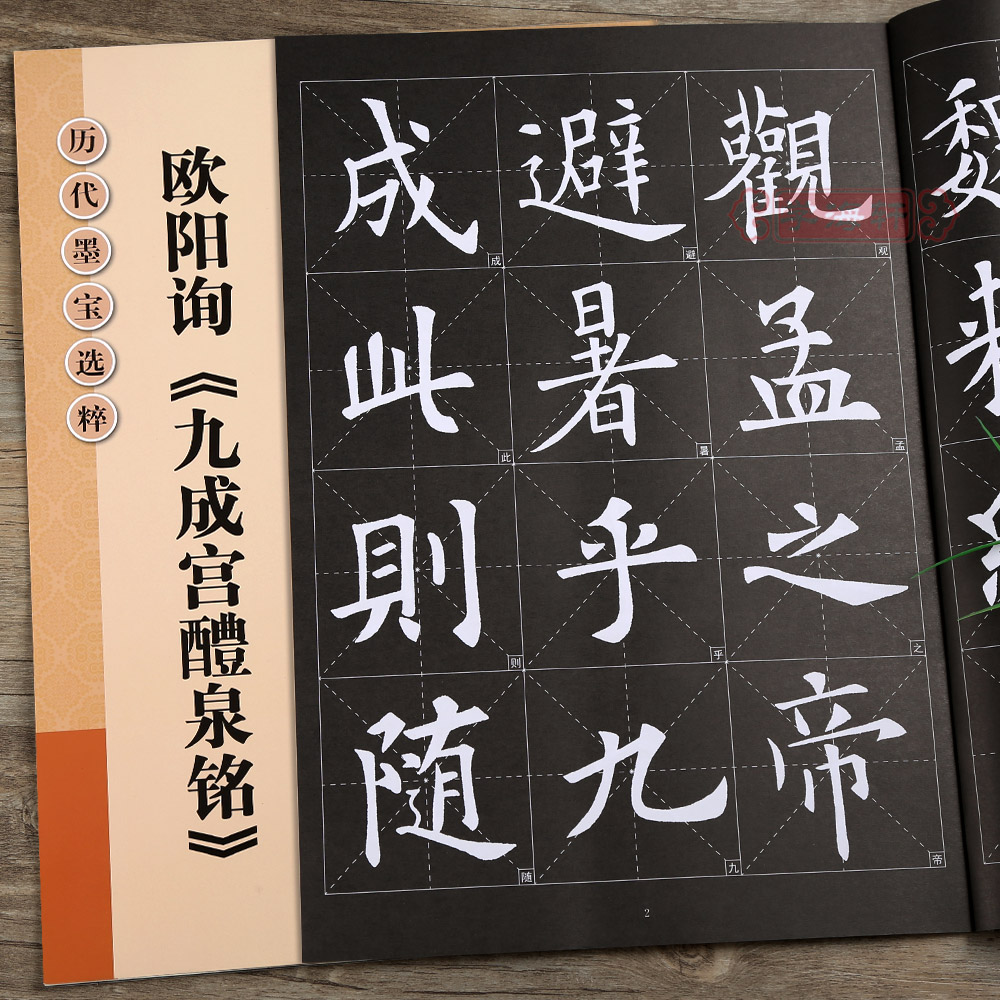 历代墨宝选粹
欧阳询《九成宫醴泉铭》
觀孟之帝
观孟之帝
避暑乎九
避暑乎九
成此則随
成此则随
2